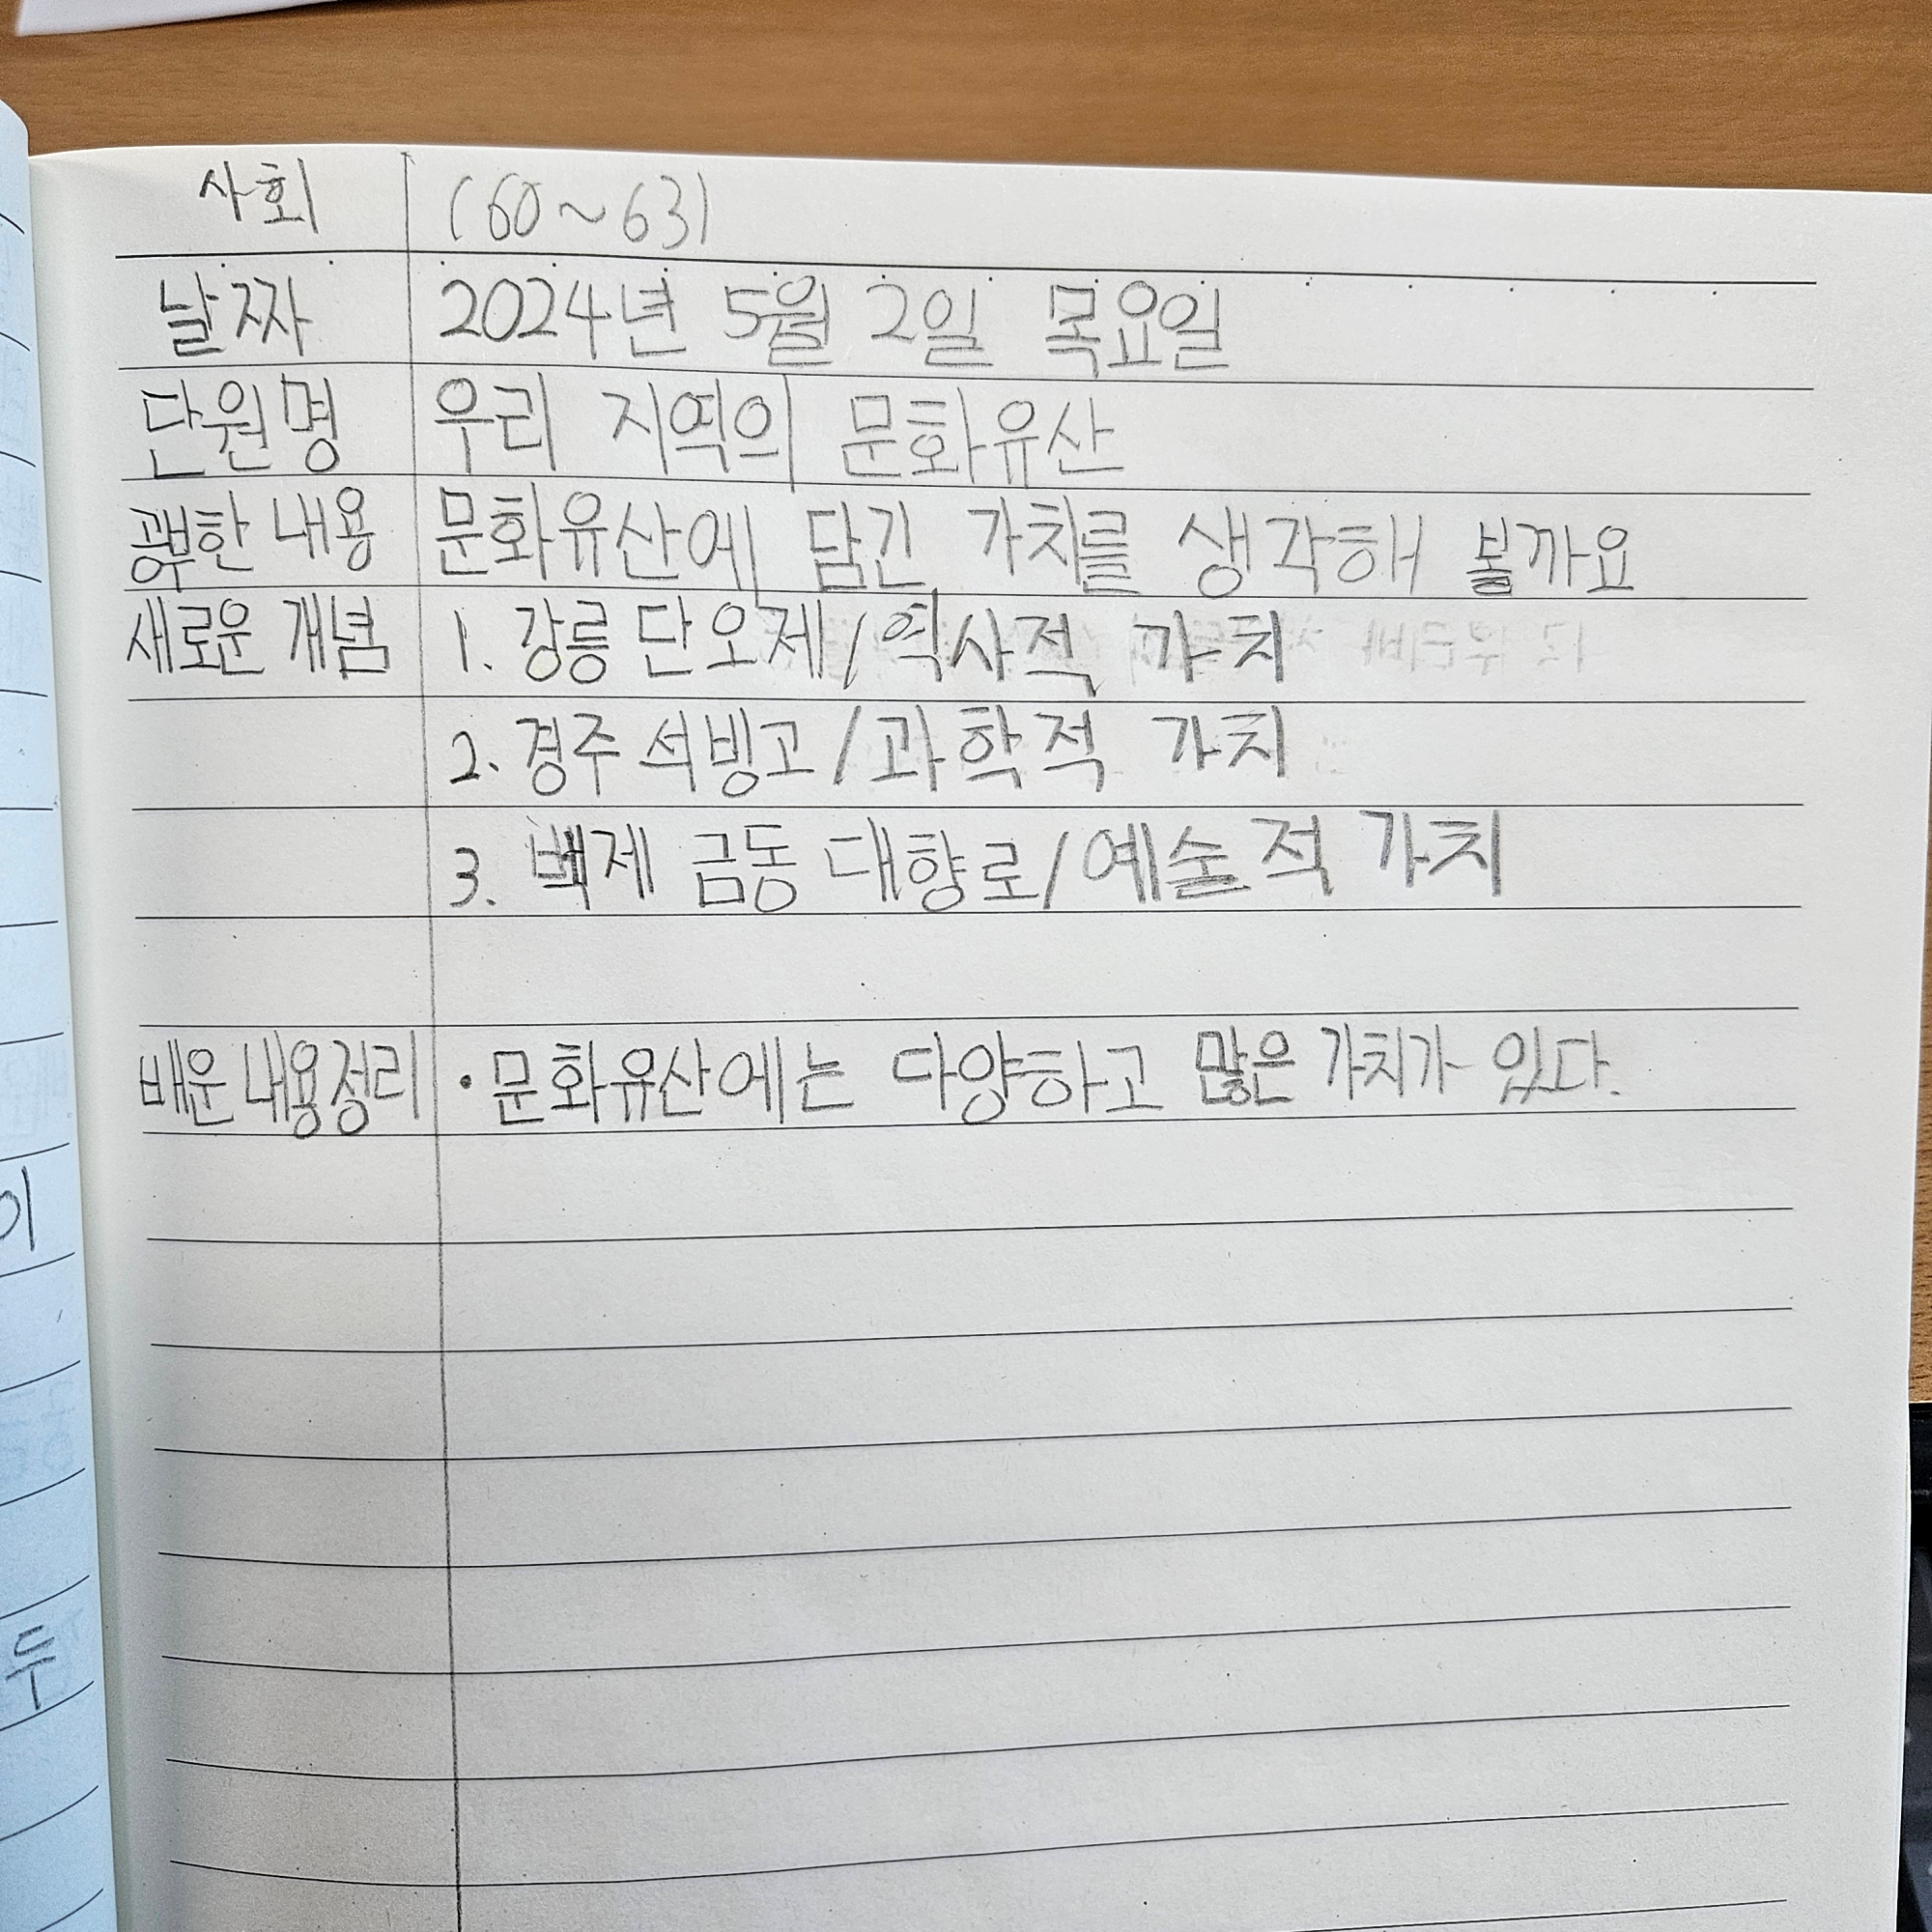 사회 (60~63)
날짜 2024년 5월 2일 목요일
단원명 우리 지역의 문화유산
공부한 내용 문화유산에 담긴 가치를 생각해 볼까요
새로운 개념 1. 강릉 단오제/역사적 가치
2. 경주 석빙고/과학적 가치
3. 백제 금동 대향로/예술적 가치
배운 내용정리 • 문화유산에는 다양하고 많은 가치가 있다.
이
두